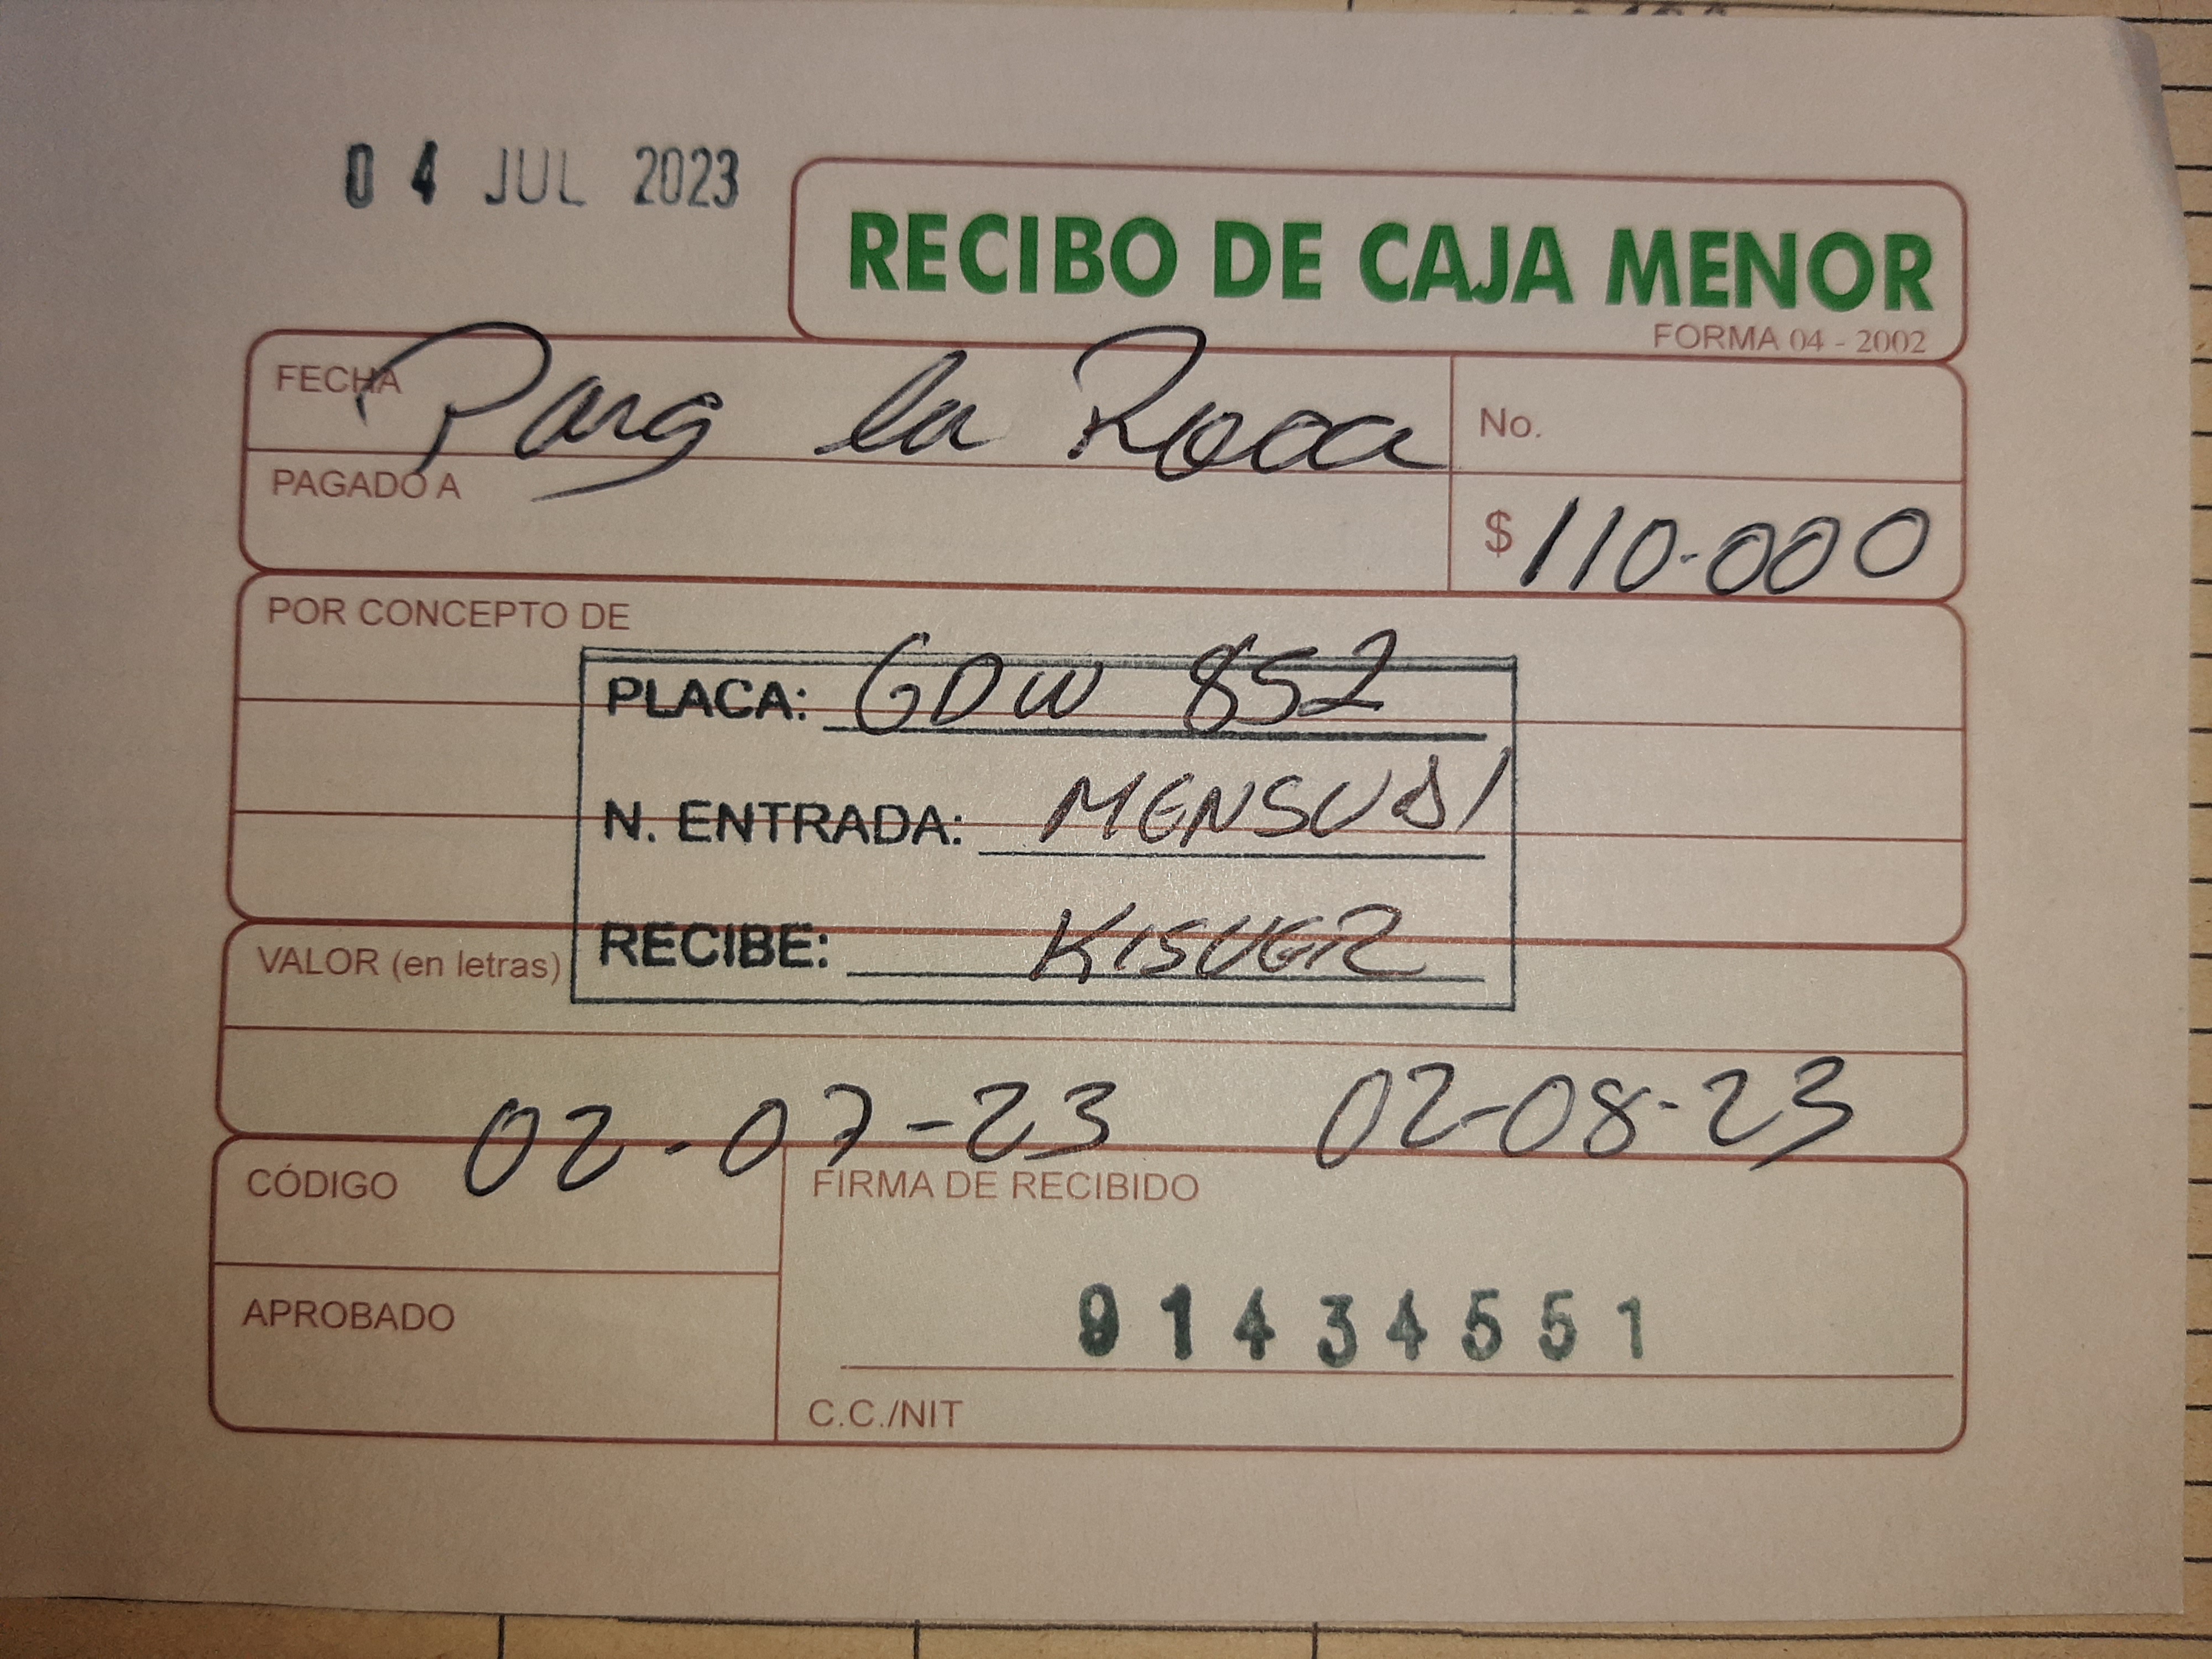 04 JUL 2023
RECIBO DE CAJA MENOR
FORMA 04 - 2002
FECHA Parq la Roca
No.
PAGADO A
$ 110.000
POR CONCEPTO DE
PLACA: GDW 852
N. ENTRADA: MENSUAl
RECIBE: KISVER
VALOR (en letras)
02-07-23 02-08-23
CÓDIGO
FIRMA DE RECIBIDO
APROBADO
91434551
C.C./NIT